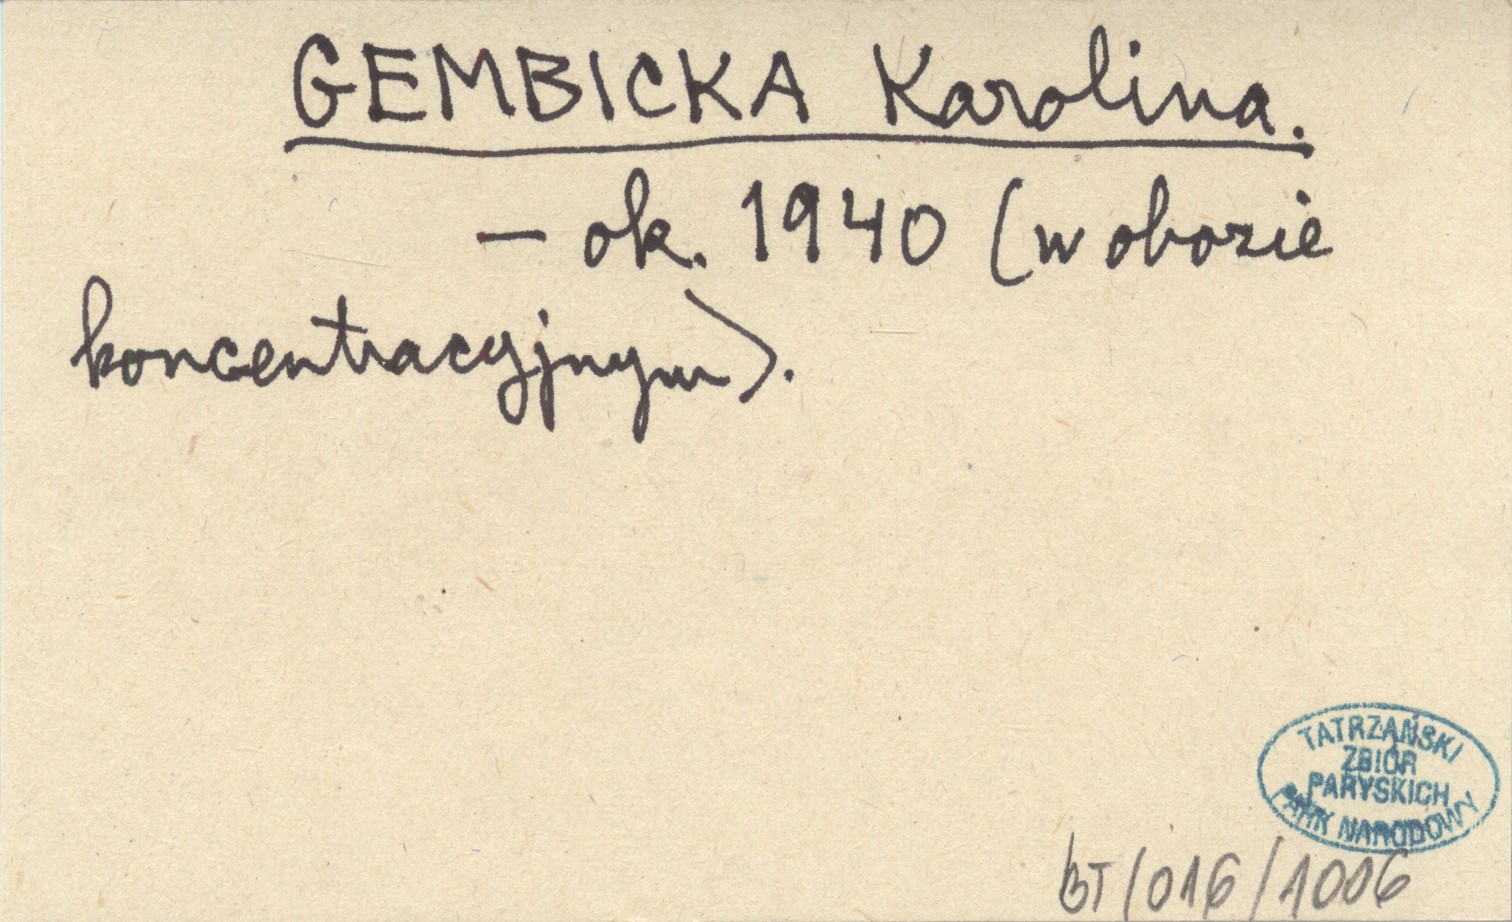 GEMBICKA Karolina.
– ok. 1940 (w obozie
koncentracyjnym).
TATRZAŃSKI
ZBIÓR
PARYSKICH
PARK NARODOWY
BT/016/1006